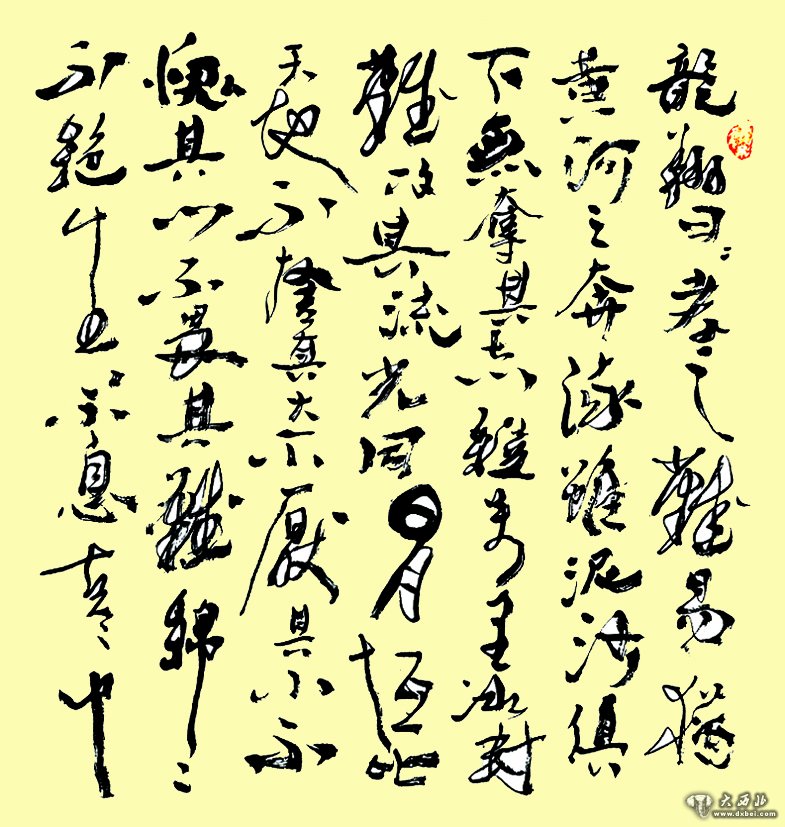 龍翔曰：孝々之難易猶
黄河之奔流雖泥沙俱
下無奪其志里冰封
難改其流光同日月恒比
天地不其大不厭其小不
愧其心不畏其難綿々
不絕生不息中
大西北
www.dxbei.com